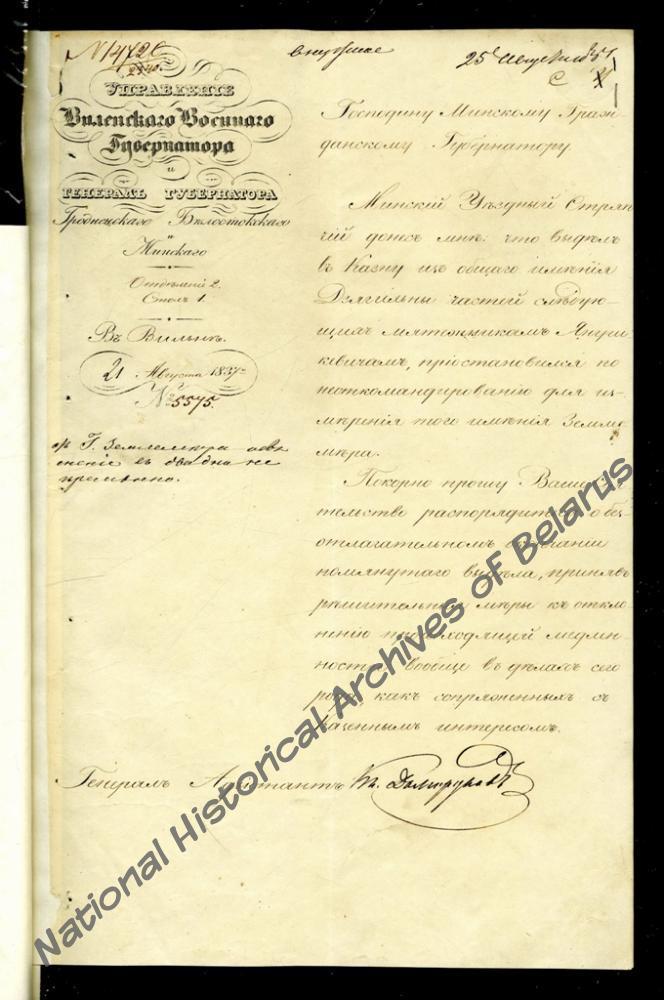 N 14726
2540.
внутрите
25 Августа 37
УПРАВЛЕНІЕ
Виленскаго Военнаго
Губернатора
и
ГЕНЕРАЛЪ ГУБЕРНАТОРА
Гродненскаго Бѣлостокскаго
и
Минскаго
Отдѣленіе 2.
Столъ 1.
Въ Вильнѣ.
21 Августа 1837 г.
№ 5575.
Г. Землемѣра
въ два дня не
премѣнно.
Господину Минскому Граж
данскому Губернатору.
Минскій Уѣздный Стряп
чій донесъ мнѣ: что выдѣлъ
въ Казну изъ общаго имѣнія
Долгильны частей слѣдую-
щихъ мятежникамъ Януш
кевичамъ, пріостановился по
неоткомандированію для из-
мѣренія того имѣнія Земле
мѣра.
Покорно прошу Ваше
тельство распорядиться о без
отлагательномъ окончаніи
помянутаго выдѣла, принявъ
рѣшительныя мѣры къ откло
ненію происходящей медлен
ности вообще въ дѣлахъ сего
рода, какъ сопряженныхъ съ
казеннымъ интересомъ.
Генералъ Адъютантъ Кн. Долгоруковъ
National Historical Archives of Belarus